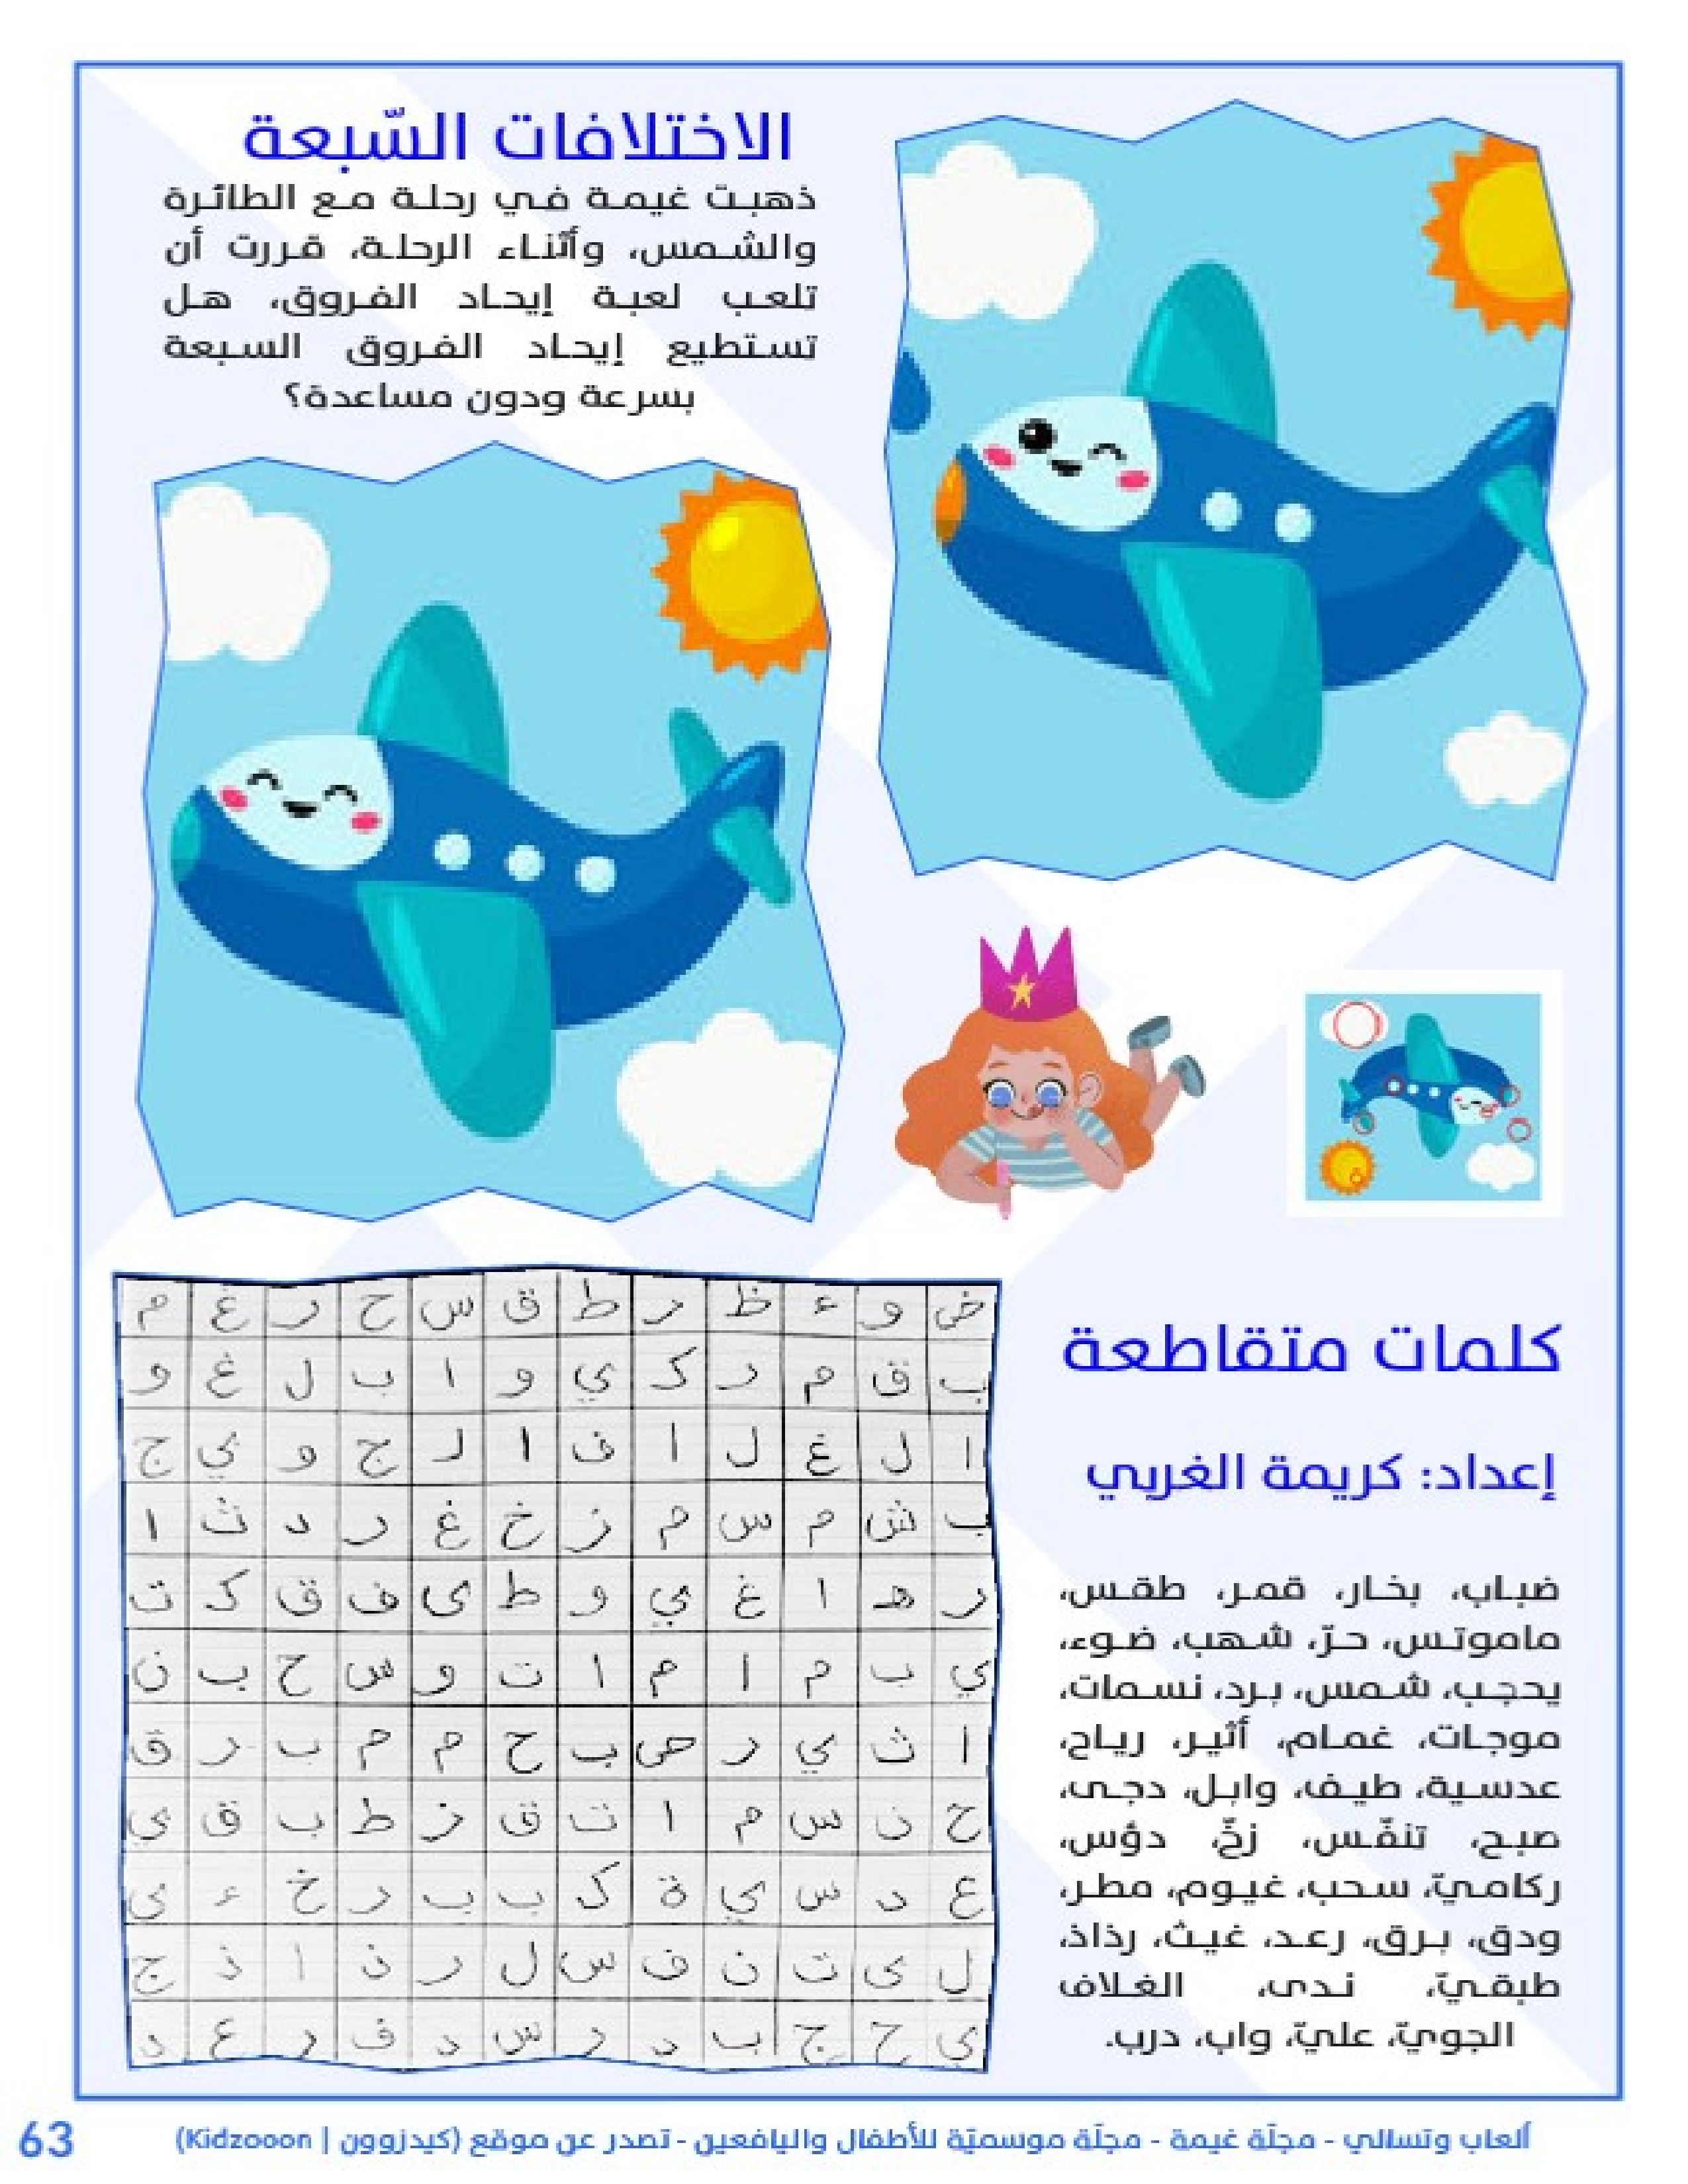 الاختلافات السّبعة
ذهبت غيمة في رحلة مع الطائرة
والشمس، وأثناء الرحلة، قررت أن
تلعب لعبة إيجاد الفروق، هل
تستطيع إيجاد الفروق السبعة
بسرعة ودون مساعدة؟
كلمات متقاطعة
إعداد: كريمة الغربي
ضباب، بخار، قمر، طقس،
ماموتس، حرّ، شهب، ضوء،
يحجب، شمس، برد، نسمات،
موجات، غمام، أثير، رياح،
عدسية، طيف، وابل، دجى،
صبح، تنفّس، زخّ، دؤس،
ركاميّ، سحب، غيوم، مطر،
ودق، برق، رعد، غيث، رذاذ،
طبقيّ، ندى، الغلاف
الجويّ، عليّ، واب، درب.
ض و ء ظ ر ط ق س ح ر غ م
ب ق م ر ك ي و ا ب ل غ و
ا ل غ ل ا ف ا ل ج و ي ج
ب ش م س م ز خ غ ر د ث ا
ر ه ا غ ي و ط ى ف ق ك ت
ي ب م ا م ا ت و س ح ب ن
ا ث ي ر ص ب ح م م ب ر ق
ح ن س م ا ت ق ز ط ب ق ي
ع د س ي ة ك ب ب ر خ ء ى
ل ى ت ن ف س ل ر ذ ا ذ ج
ي ح ج ب د ر س د ف ر ع د
ألعاب وتسالي - مجلّة غيمة - مجلّة موسميّة للأطفال واليافعين - تصدر عن موقع (كيدزوون | Kidzooon)
63